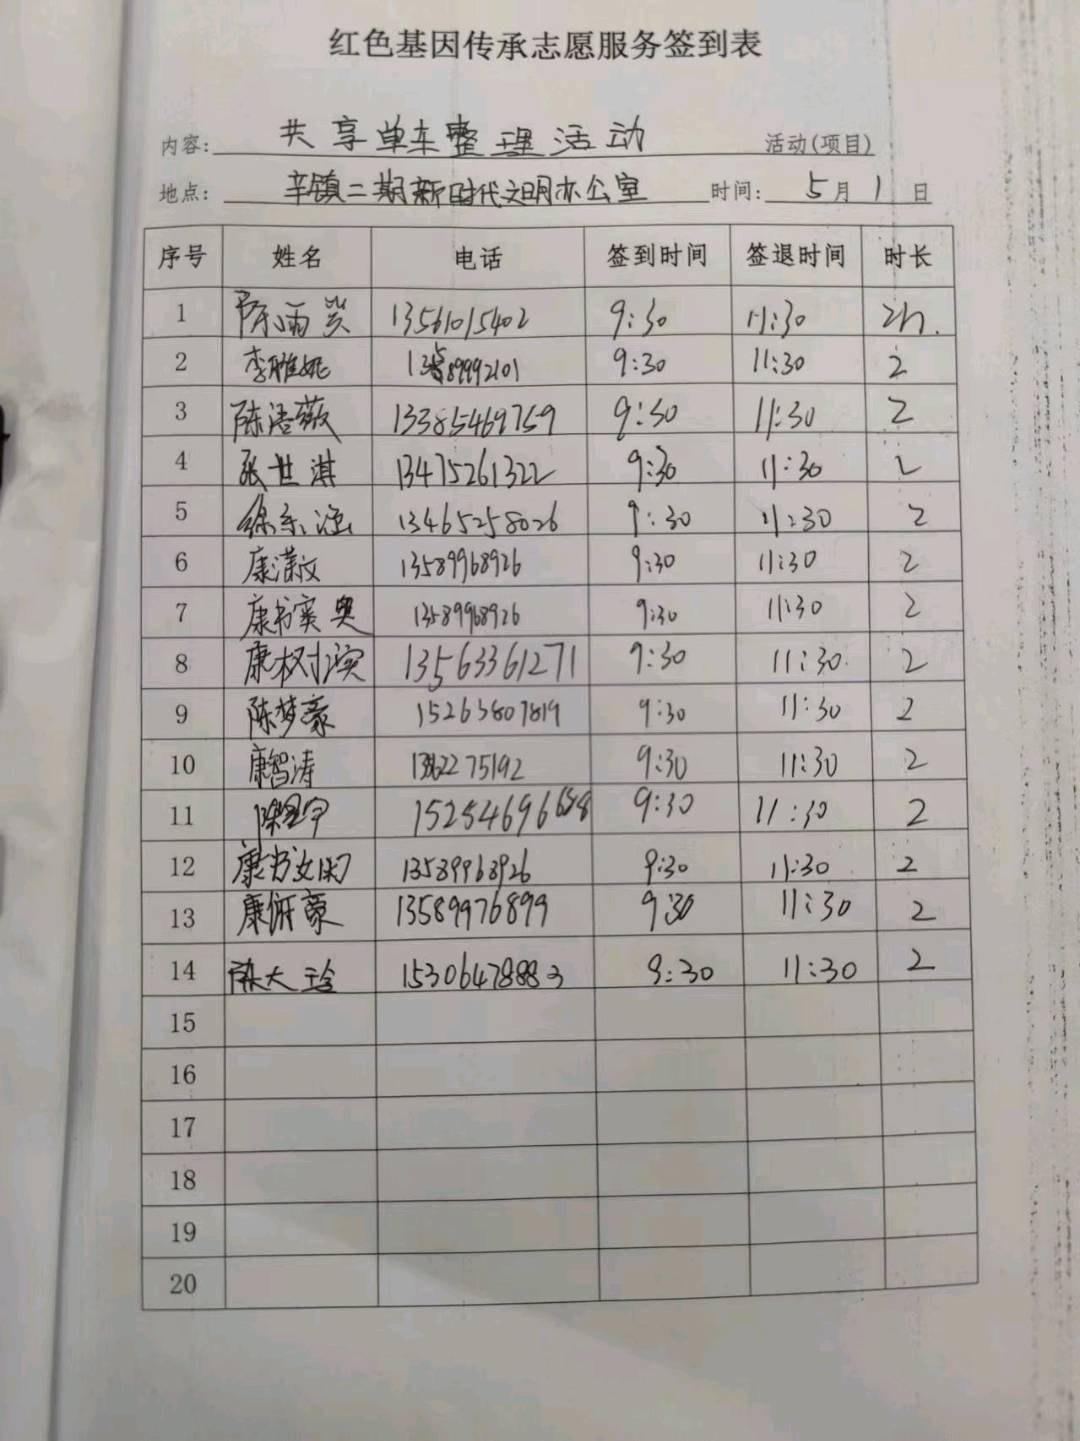 红色基因传承志愿服务签到表
内容: 共享单车整理活动 活动(项目)
地点: 辛镇二期新时代文明办公室 时间: 5月1日
序号 姓名 电话 签到时间 签退时间 时长
1 陈雨 13561015402 9:30 11:30 2h.
2 李雅妮 13589992101 9:30 11:30 2
3 陈浩薇 13385469759 9:30 11:30 2
4 张世淇 13475261322 9:30 11:30 2
5 徐 13465258026 9:30 11:30 2
6 康潇文 13589968926 9:30 11:30 2
7 康书奕 13589968926 9:30 11:30 2
8 康树滨 13563361271 9:30 11:30 2
9 陈梦豪 15265807819 9:30 11:30 2
10 康智涛 9:30 11:30 2
11 15254696658 9:30 11:30 2
12 康书文 13589968926 9:30 11:30 2
13 康 豪 13589976899 9:30 11:30 2
14 陈大玲 15306478883 9:30 11:30 2
15
16
17
18
19
20